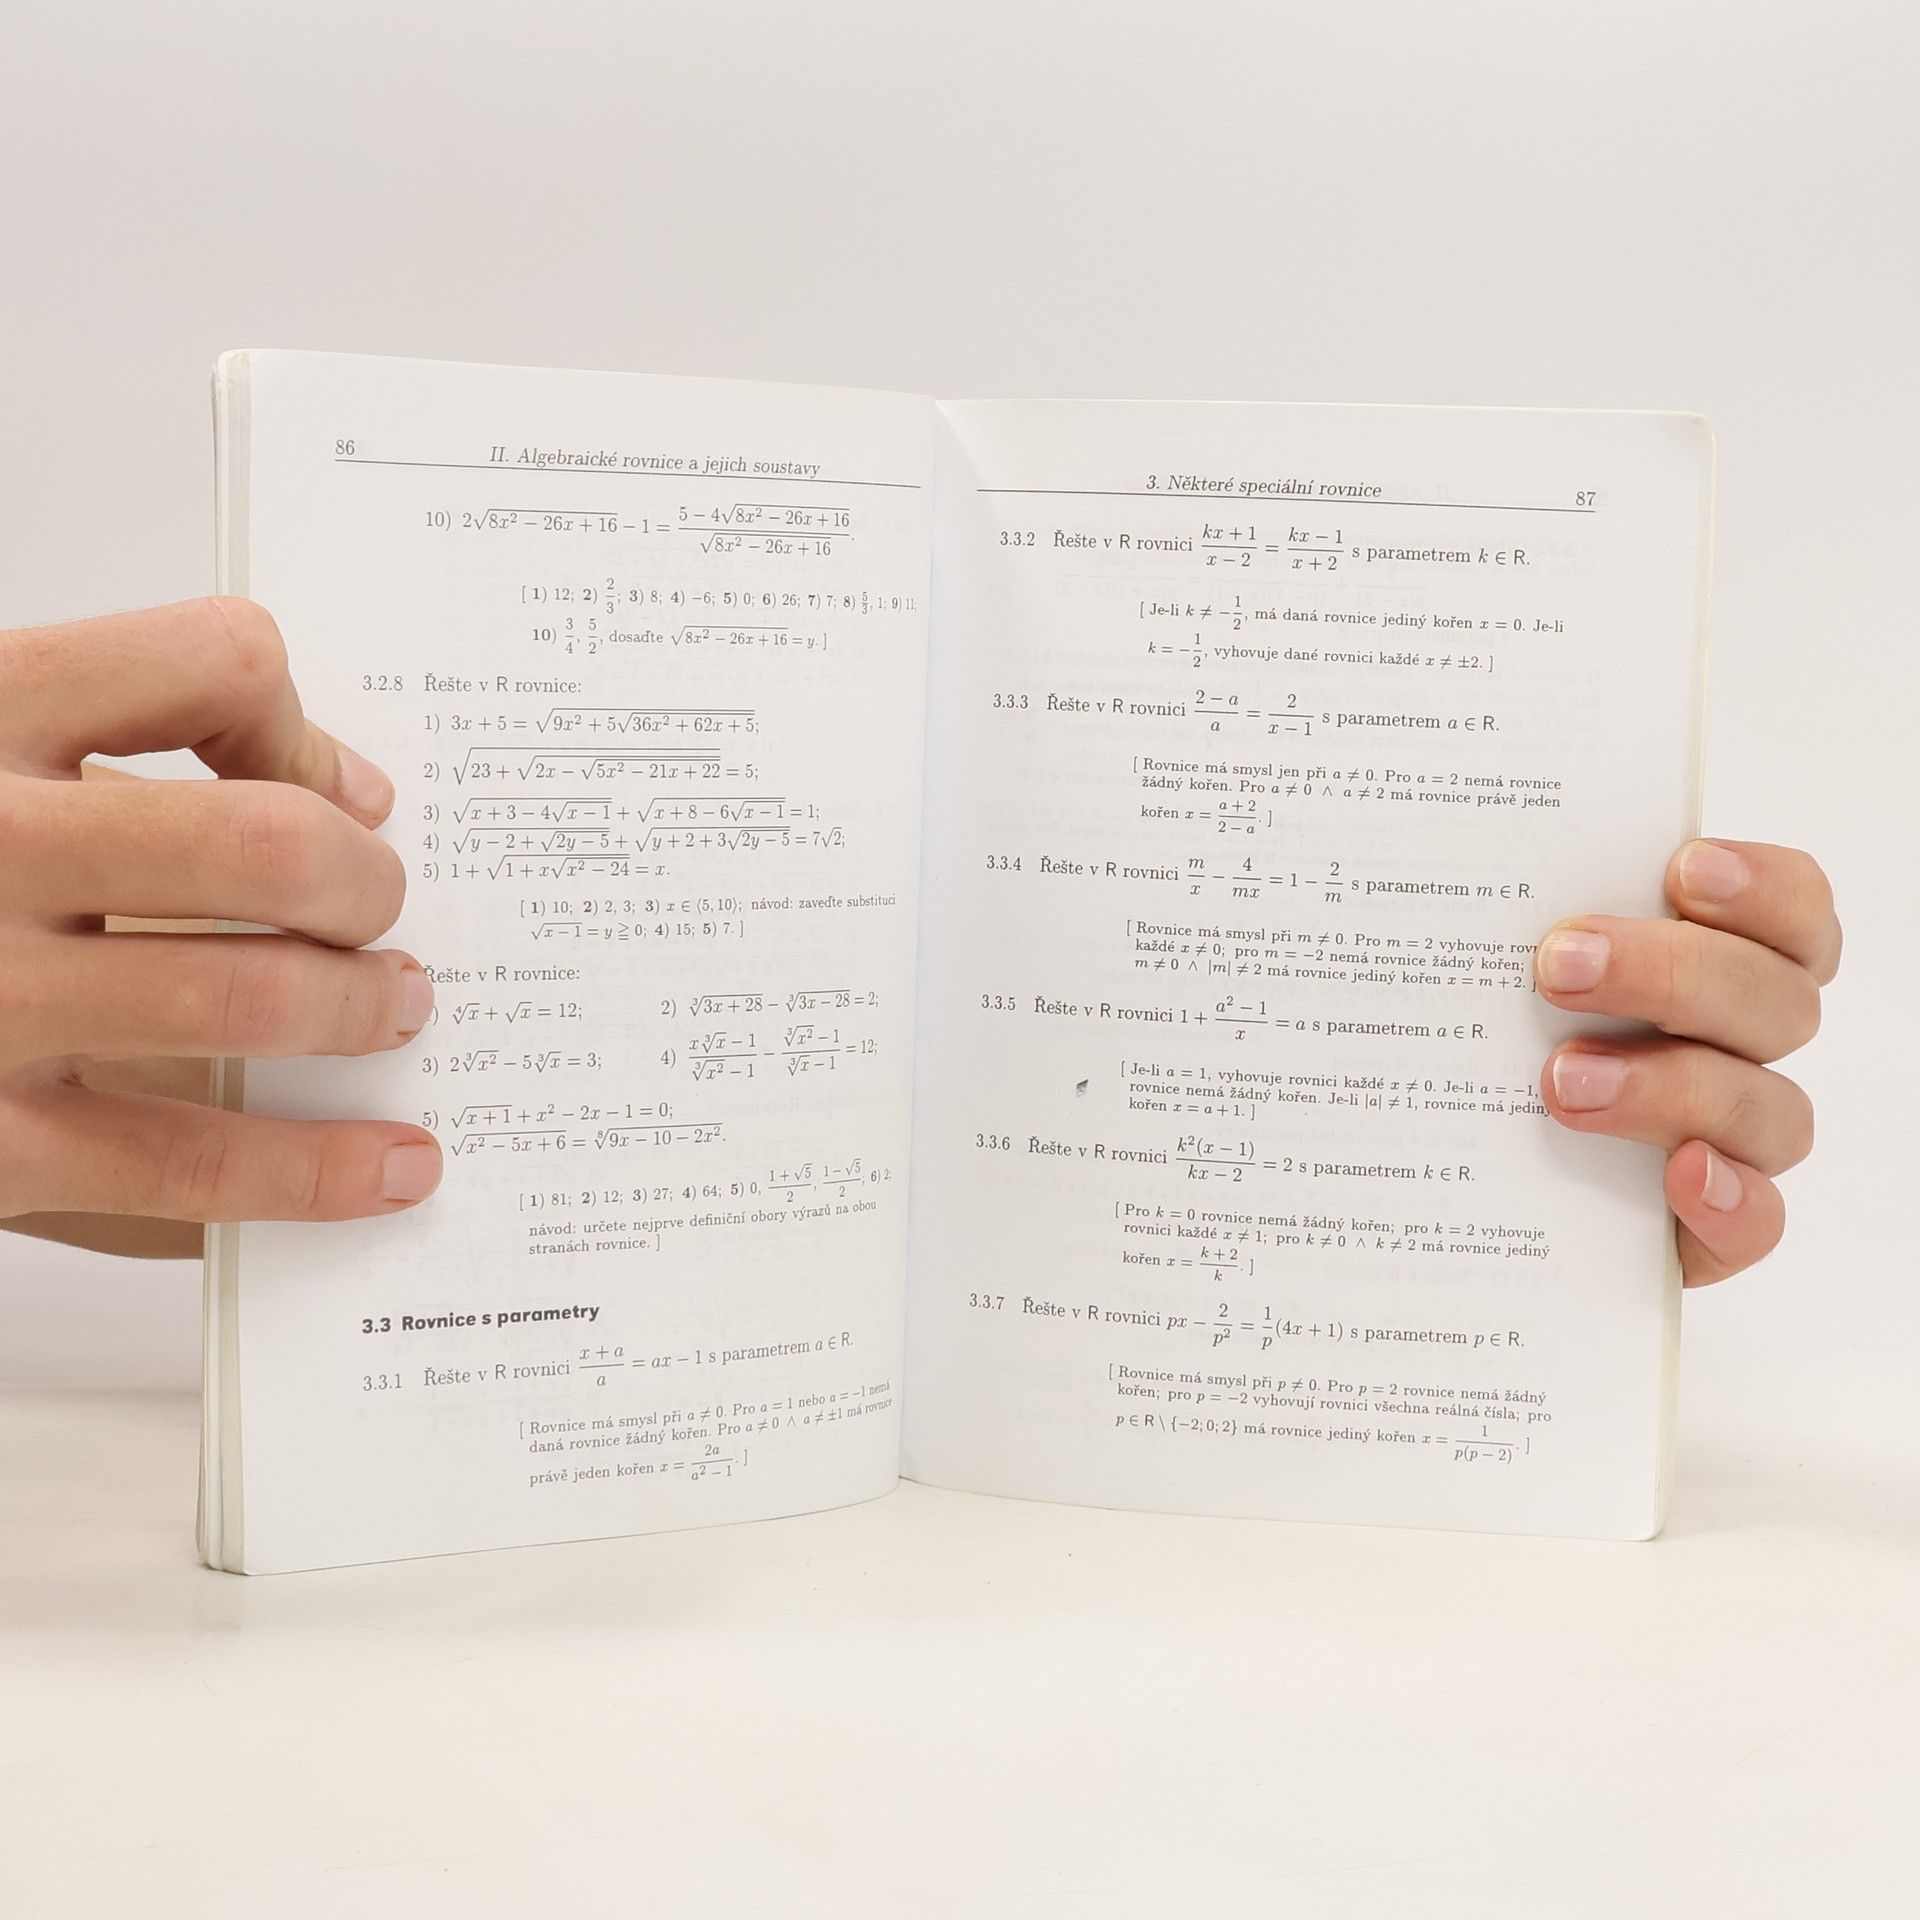 86
II. Algebraické rovnice a jejich soustavy
10) 2√(8x² − 26x + 16) − 1 = (5 − 4√(8x² − 26x + 16))/√(8x² − 26x + 16).
[ 1) 12; 2) 2/3; 3) 8; 4) −6; 5) 0; 6) 26; 7) 7; 8) 5/3, 1; 9) 11;
10) 3/4, 5/2, dosaďte √(8x² − 26x + 16) = y. ]
3.2.8 Řešte v R rovnice:
1) 3x + 5 = √(9x² + 5√(36x² + 62x + 5));
2) √(23 + √(2x − √(5x² − 21x + 22))) = 5;
3) √(x + 3 − 4√(x − 1)) + √(x + 8 − 6√(x − 1)) = 1;
4) √(y − 2 + √(2y − 5)) + √(y + 2 + 3√(2y − 5)) = 7√2;
5) 1 + √(1 + x√(x² − 24)) = x.
[ 1) 10; 2) 2, 3; 3) x ∈ ⟨5, 10⟩; návod: zaveďte substituci
√(x − 1) = y ≧ 0; 4) 15; 5) 7. ]
Řešte v R rovnice:
) ∜x + √x = 12; 2) ∛(3x + 28) − ∛(3x − 28) = 2;
3) 2∛(x²) − 5∛x = 3; 4) (x∛x − 1)/(∛(x²) − 1) − (∛(x²) − 1)/(∛x − 1) = 12;
5) √(x + 1) + x² − 2x − 1 = 0;
√(x² − 5x + 6) = ⁸√(9x − 10 − 2x²).
[ 1) 81; 2) 12; 3) 27; 4) 64; 5) 0, (1 + √5)/2, (1 − √5)/2; 6) 2;
návod: určete nejprve definiční obory výrazů na obou
stranách rovnice. ]
3.3 Rovnice s parametry
3.3.1 Řešte v R rovnici (x + a)/a = ax − 1 s parametrem a ∈ R.
[ Rovnice má smysl při a ≠ 0. Pro a = 1 nebo a = −1 nemá
daná rovnice žádný kořen. Pro a ≠ 0 ∧ a ≠ ±1 má rovnice
právě jeden kořen x = 2a/(a² − 1). ]
3. Některé speciální rovnice
87
3.3.2 Řešte v R rovnici (kx + 1)/(x − 2) = (kx − 1)/(x + 2) s parametrem k ∈ R.
[ Je-li k ≠ −1/2, má daná rovnice jediný kořen x = 0. Je-li
k = −1/2, vyhovuje dané rovnici každé x ≠ ±2. ]
3.3.3 Řešte v R rovnici (2 − a)/a = 2/(x − 1) s parametrem a ∈ R.
[ Rovnice má smysl jen při a ≠ 0. Pro a = 2 nemá rovnice
žádný kořen. Pro a ≠ 0 ∧ a ≠ 2 má rovnice právě jeden
kořen x = (a + 2)/(2 − a). ]
3.3.4 Řešte v R rovnici m/x − 4/(mx) = 1 − 2/m s parametrem m ∈ R.
[ Rovnice má smysl při m ≠ 0. Pro m = 2 vyhovuje
každé x ≠ 0; pro m = −2 nemá rovnice žádný kořen;
m ≠ 0 ∧ |m| ≠ 2 má rovnice jediný kořen x = m + 2. ]
3.3.5 Řešte v R rovnici 1 + (a² − 1)/x = a s parametrem a ∈ R.
[ Je-li a = 1, vyhovuje rovnici každé x ≠ 0. Je-li a = −1,
rovnice nemá žádný kořen. Je-li |a| ≠ 1, rovnice má
kořen x = a + 1. ]
3.3.6 Řešte v R rovnici k²(x − 1)/(kx − 2) = 2 s parametrem k ∈ R.
[ Pro k = 0 rovnice nemá žádný kořen; pro k = 2 vyhovuje
rovnici každé x ≠ 1; pro k ≠ 0 ∧ k ≠ 2 má rovnice jediný
kořen x = (k + 2)/k. ]
3.3.7 Řešte v R rovnici px − 2/p² = 1/p(4x + 1) s parametrem p ∈ R.
[ Rovnice má smysl při p ≠ 0. Pro p = 2 rovnice nemá žádný
kořen; pro p = −2 vyhovují rovnici všechna reálná čísla; pro
p ∈ R \ {−2; 0; 2} má rovnice jediný kořen x = 1/(p(p − 2)). ]